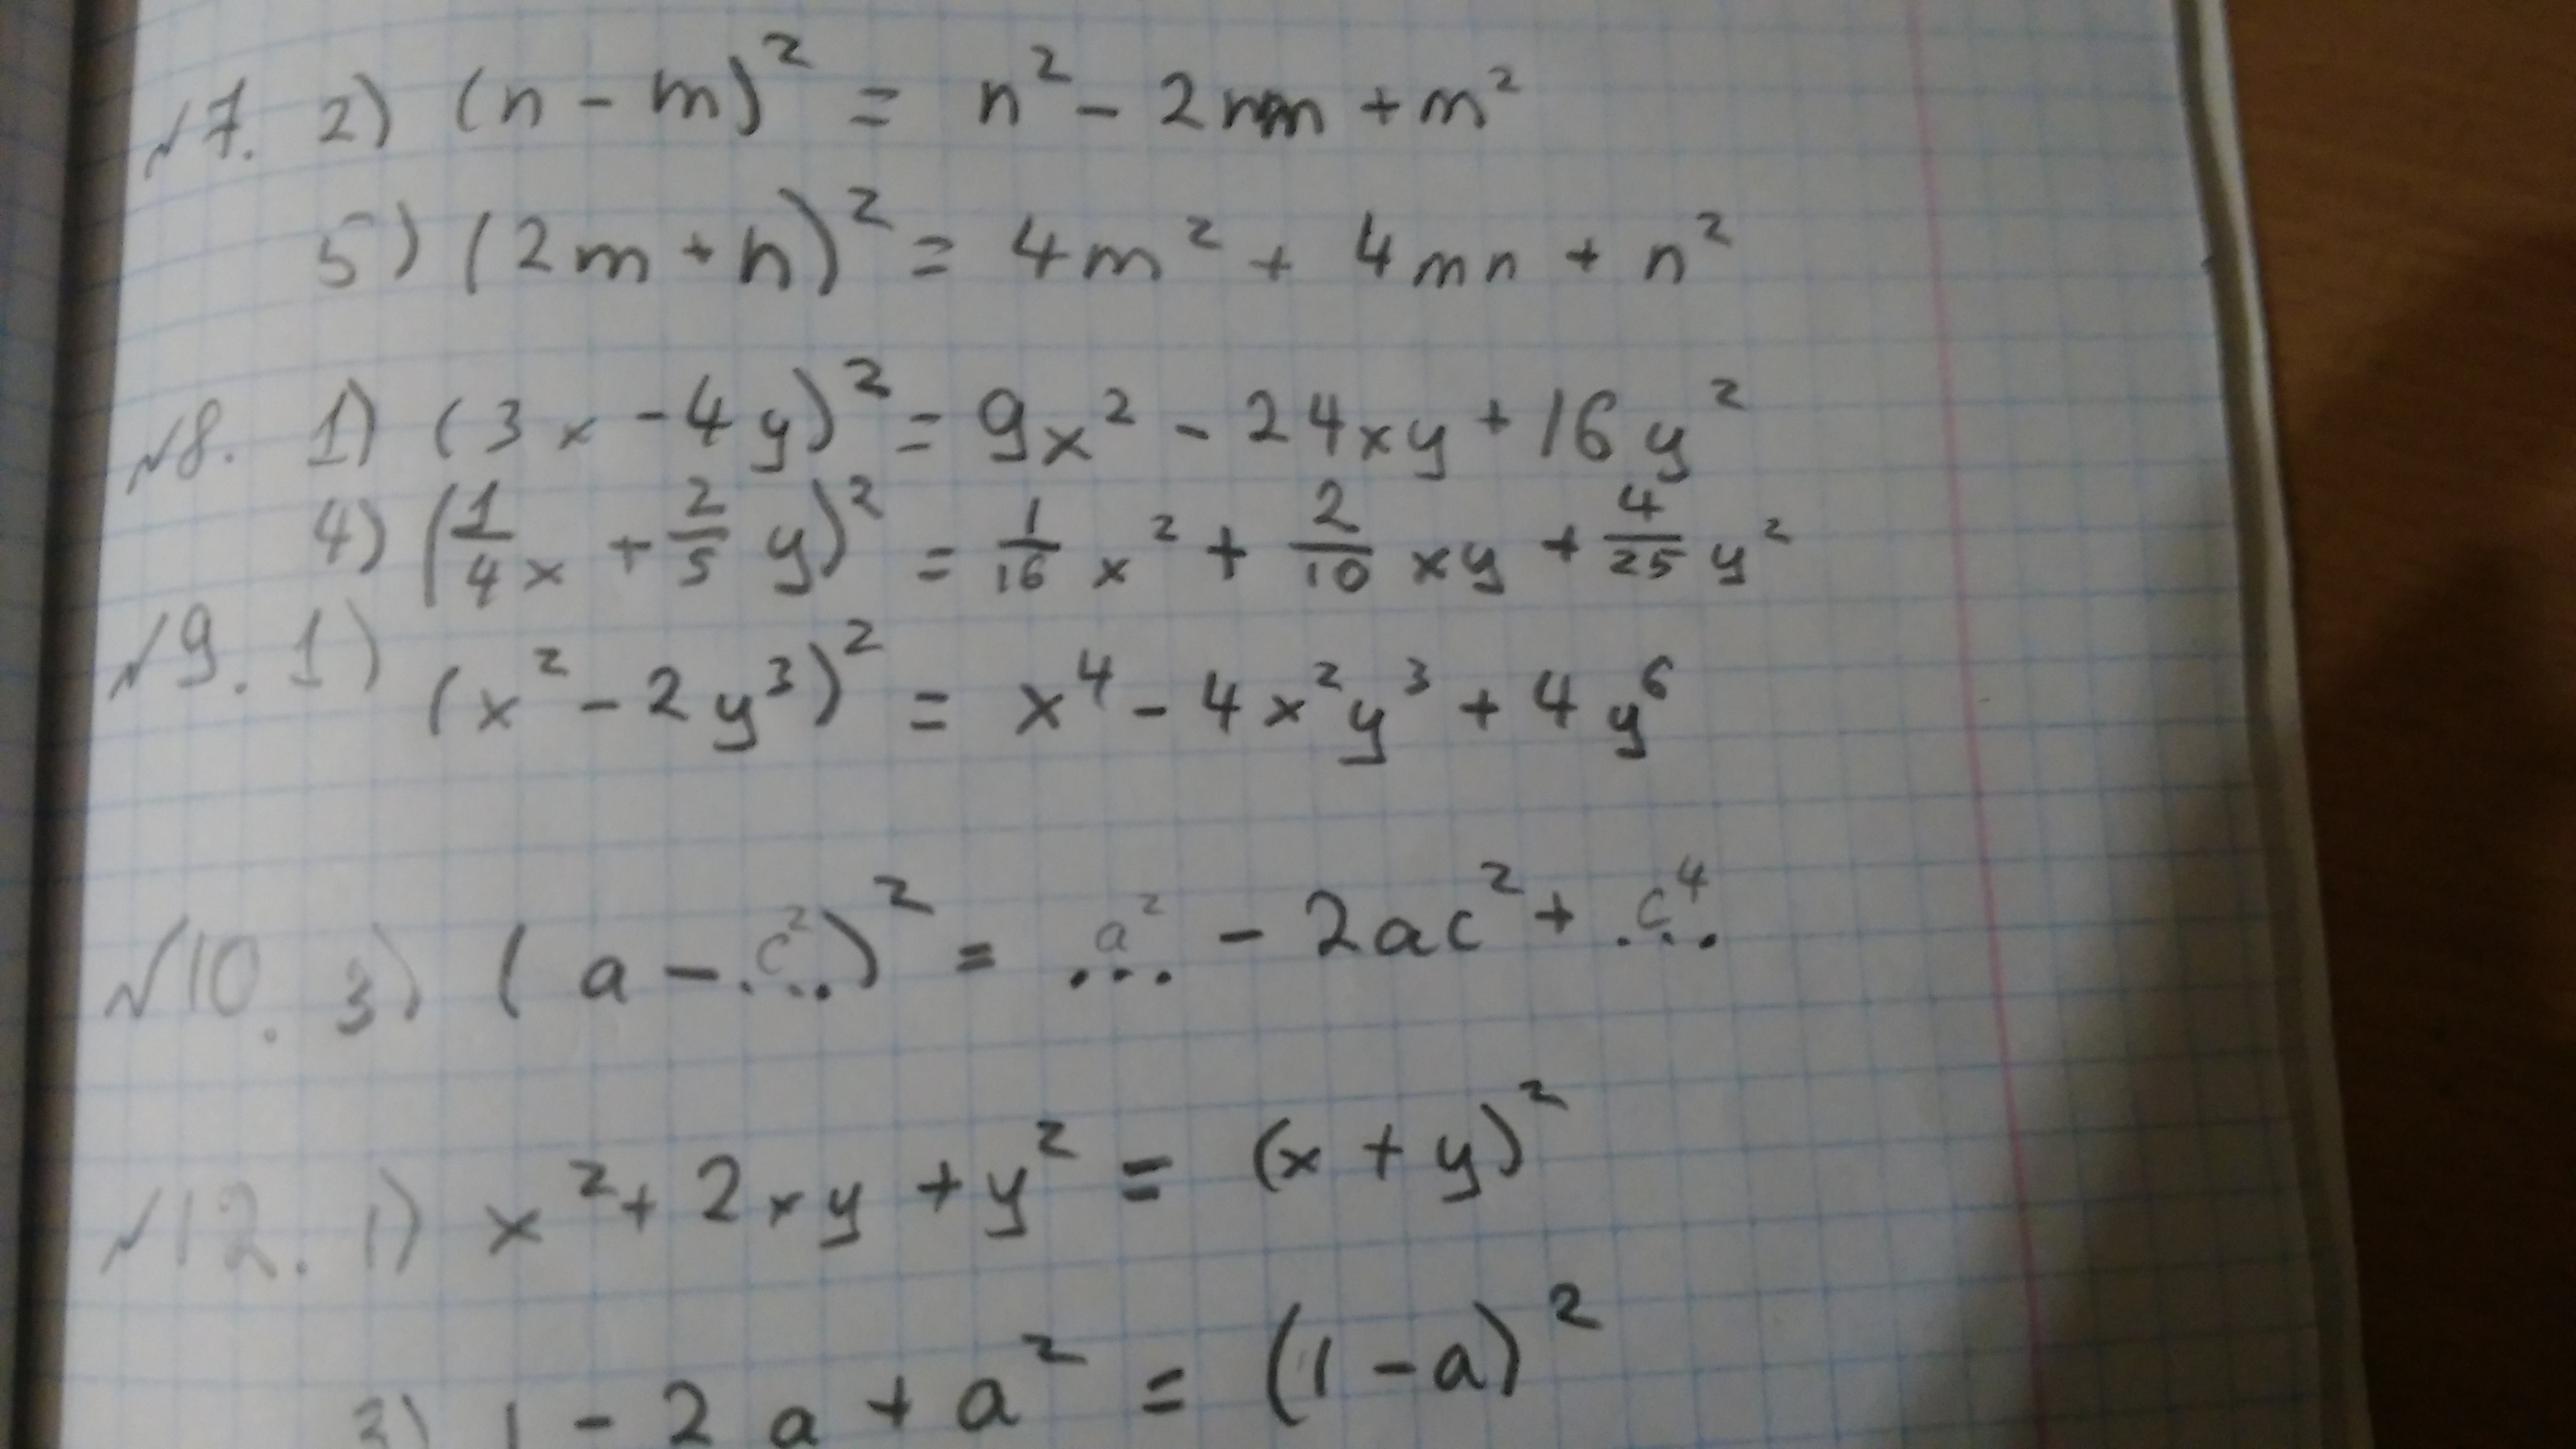 №7. 2) (n - m)² = n² - 2nm + m²
5) (2m + n)² = 4m² + 4mn + n²
№8. 1) (3x - 4y)² = 9x² - 24xy + 16y²
4) (1/4 x + 2/5 y)² = 1/16 x² + 2/10 xy + 4/25 y²
№9. 1) (x² - 2y³)² = x⁴ - 4x²y³ + 4y⁶
№10. 3) (a - ...c²)² = ...a² - 2ac² + ...c⁴
№12. 1) x² + 2xy + y² = (x + y)²
3) 1 - 2a + a² = (1 - a)²